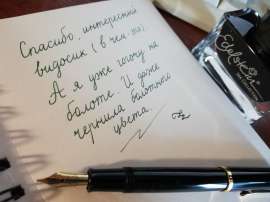 Спасибо, интересный
видосик (в чем-то).
А я уже сижу на
болоте. И даже
чернила болотного
цвета.
Edelstein